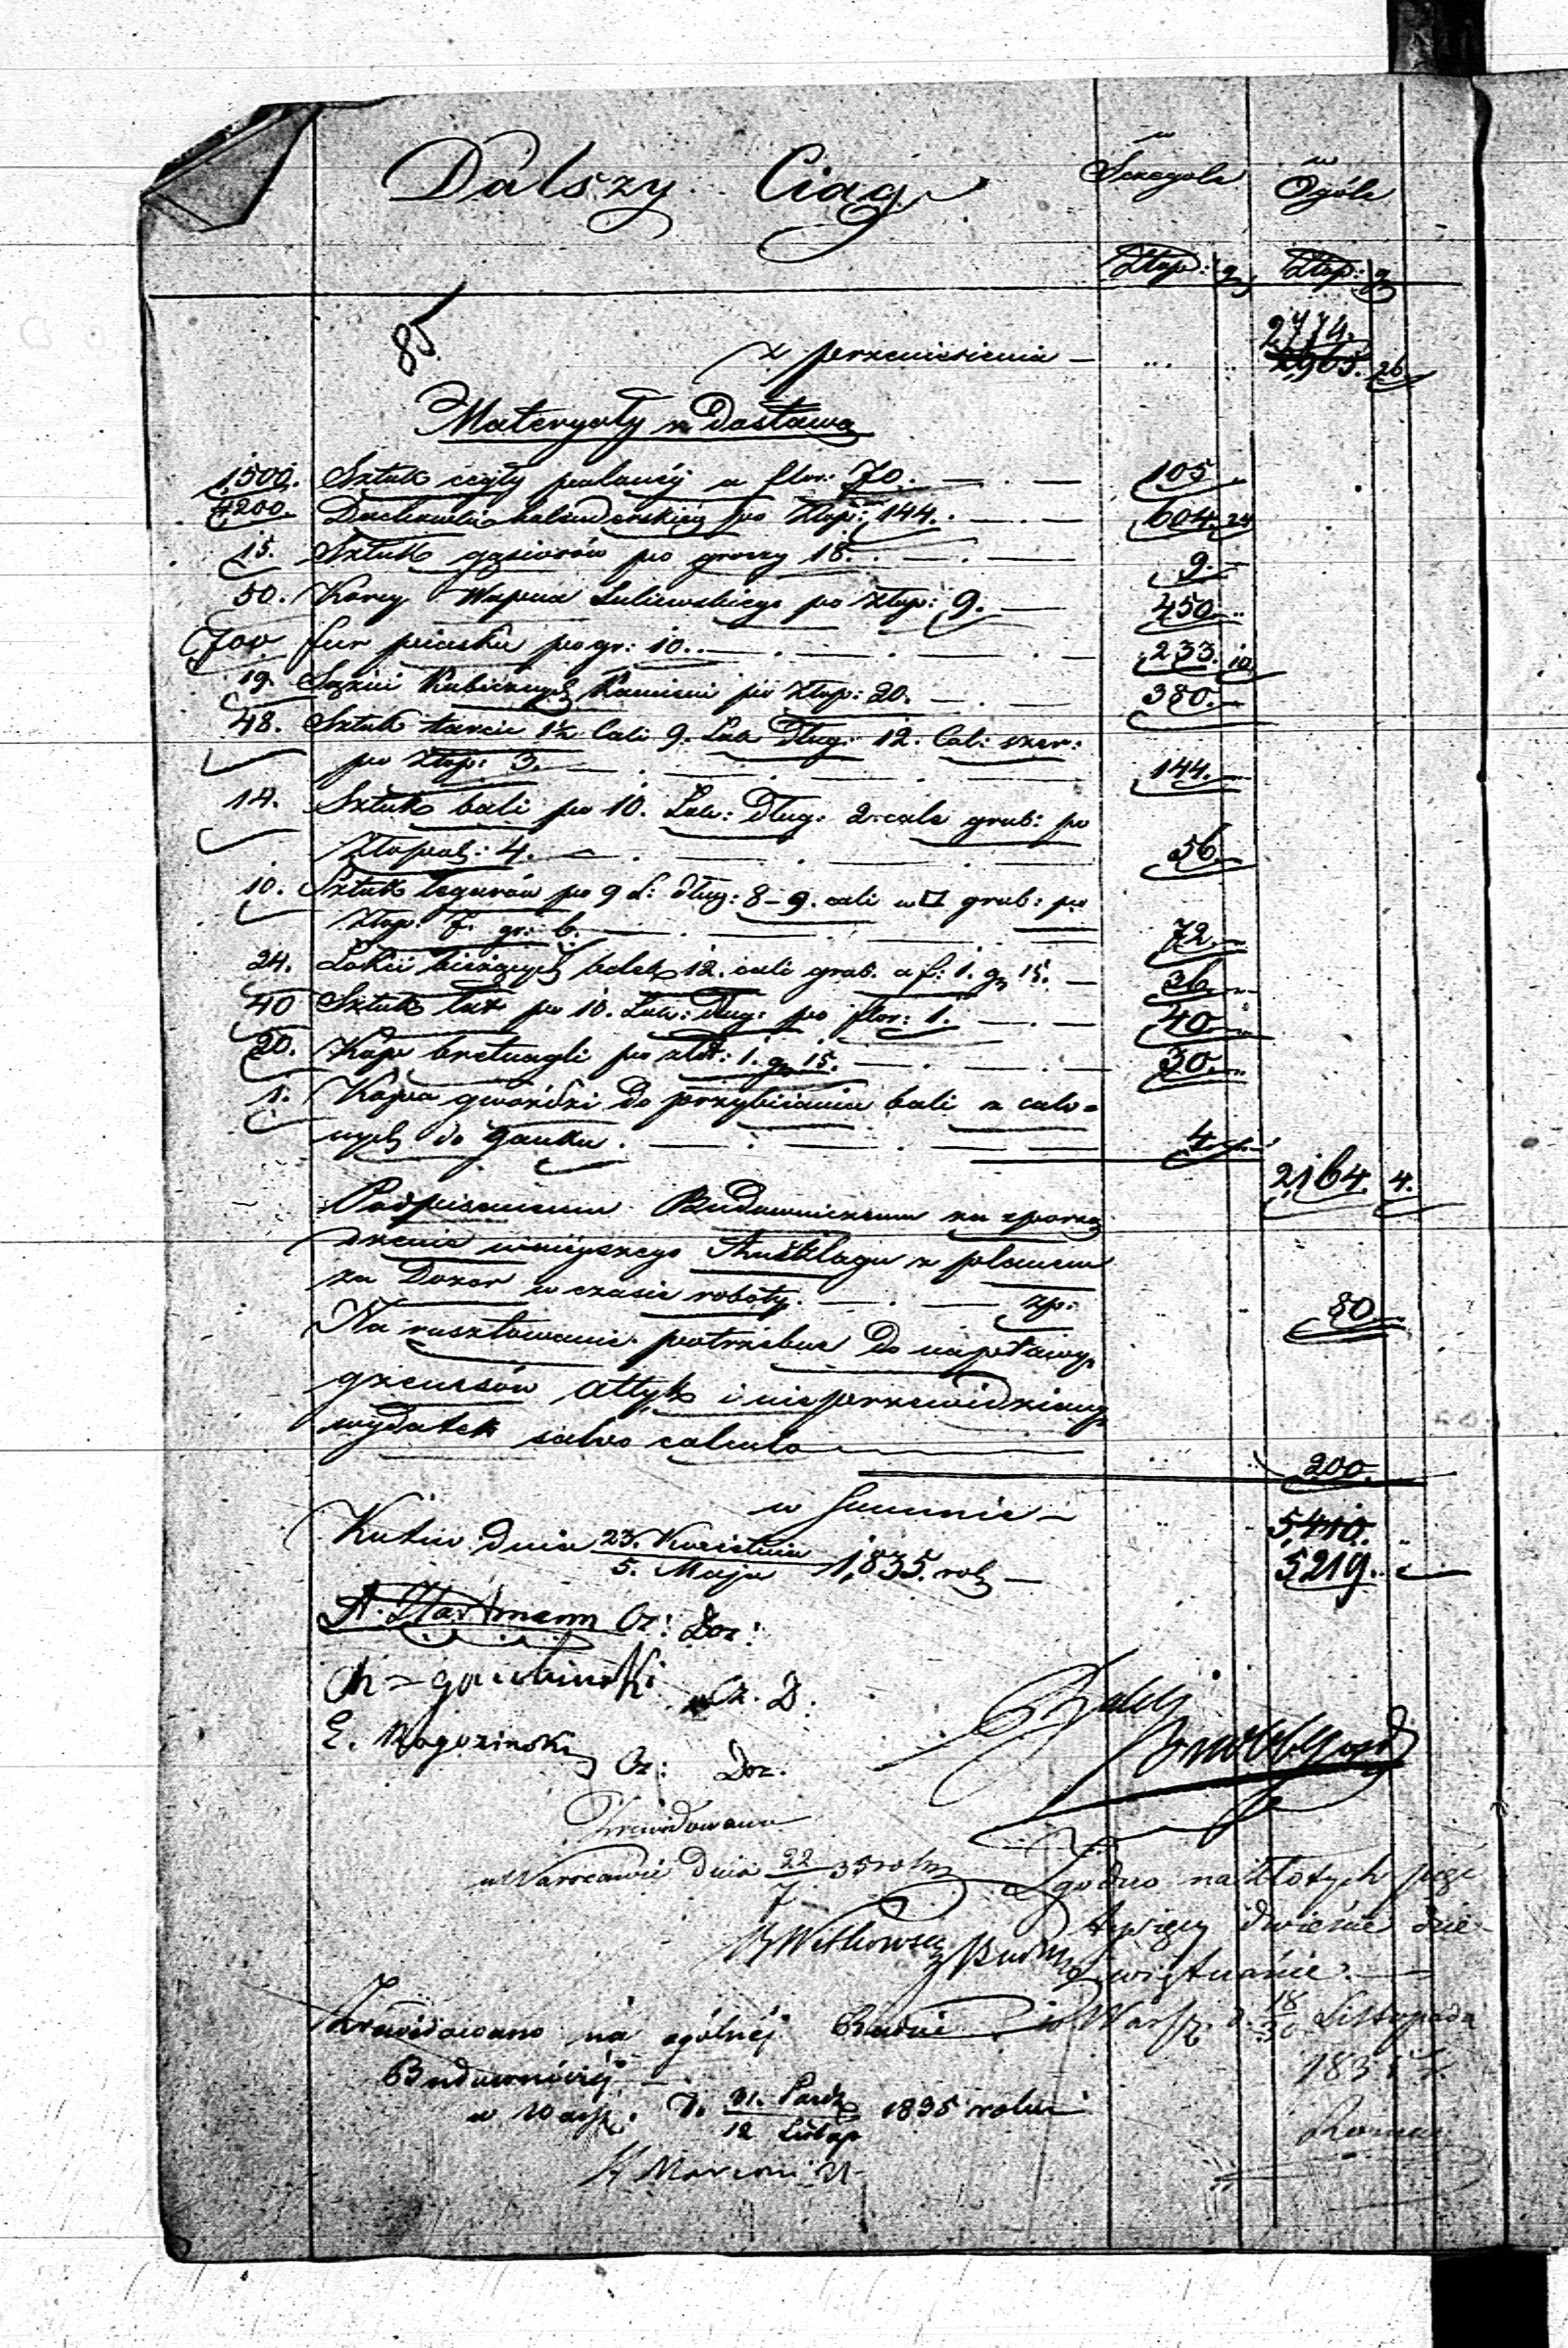 Dalszy Ciąg
w Szczegole
w Ogóle
Złop: g
Złop: g
85
z przeniesienia —
2774.
2965. 26
Materyały z Dostawą
1500. Sztuk cegły palonéj a flor: 70. 105
4200. Dachówki holenderskiéj po złop: 144. 604. 24
15. Sztuk gąsiorów po groszy 18. 9.
50. Korcy Wapna Sulejewskiego po złop: 9. 450
700 fur piasku po gr: 10. 233. 10
19. Sążni Kubicznych Kamieni po złop: 20. 380.
48. Sztuk tarcic 1½ Cali 9. Łok Dług: 12. Cal: szer:
po złop: 3. 144.
14. Sztuk bali po 10. Łok: Dług: 2 cale grub: po
Złopol: 4. 56.
10. Sztuk legarów po 9 ł: dług: 8-9. cali w □ grub: po
złop: 7. gr: 6. 72.
24. Łokci bieżących belek 12. cali grub. a f: 1. g 15. 36.
40 Sztuk łat po 10. Łok: Dług: po flor: 1. 40
20. Kóp bretnagli po złot: 1. g 15. 30.
1. Kopa gwoździ do przybicia bali z calo=
wych do Ganku. 4
2,164. 4.
Podpisanemu Budowniczemu za sporzą
dzenie niniejszego Anszlagu z planem
za Dozór w czasie roboty. zp: 80
Na rusztowanie potrzebne do naprawy
gzemsów Attyk i nieprzewidziany
wydatek salvo calculo 200.
w Summie —
5,410.
5219.
Kutno dnia 23. Kwietnia / 5. Maja 1,835. roku —
A. Hartmann Cz: Doz:
Cz. D:
E. Rogozinski Cz: Doz.
Zrewidowano
w Warszawie dnia 22/7 35 roku
Zgodno na Złotych pięć
tysięcy dwieście dzie-
więtnaście. —
w Warsz. d. 18/30 Listopada
1835 r.
Zrewidowano na ogólnéj Radzie
Budowniczéj —
w Warsz: D. 31. Paźdz / 12 Listop 1835 roku
H Marconi